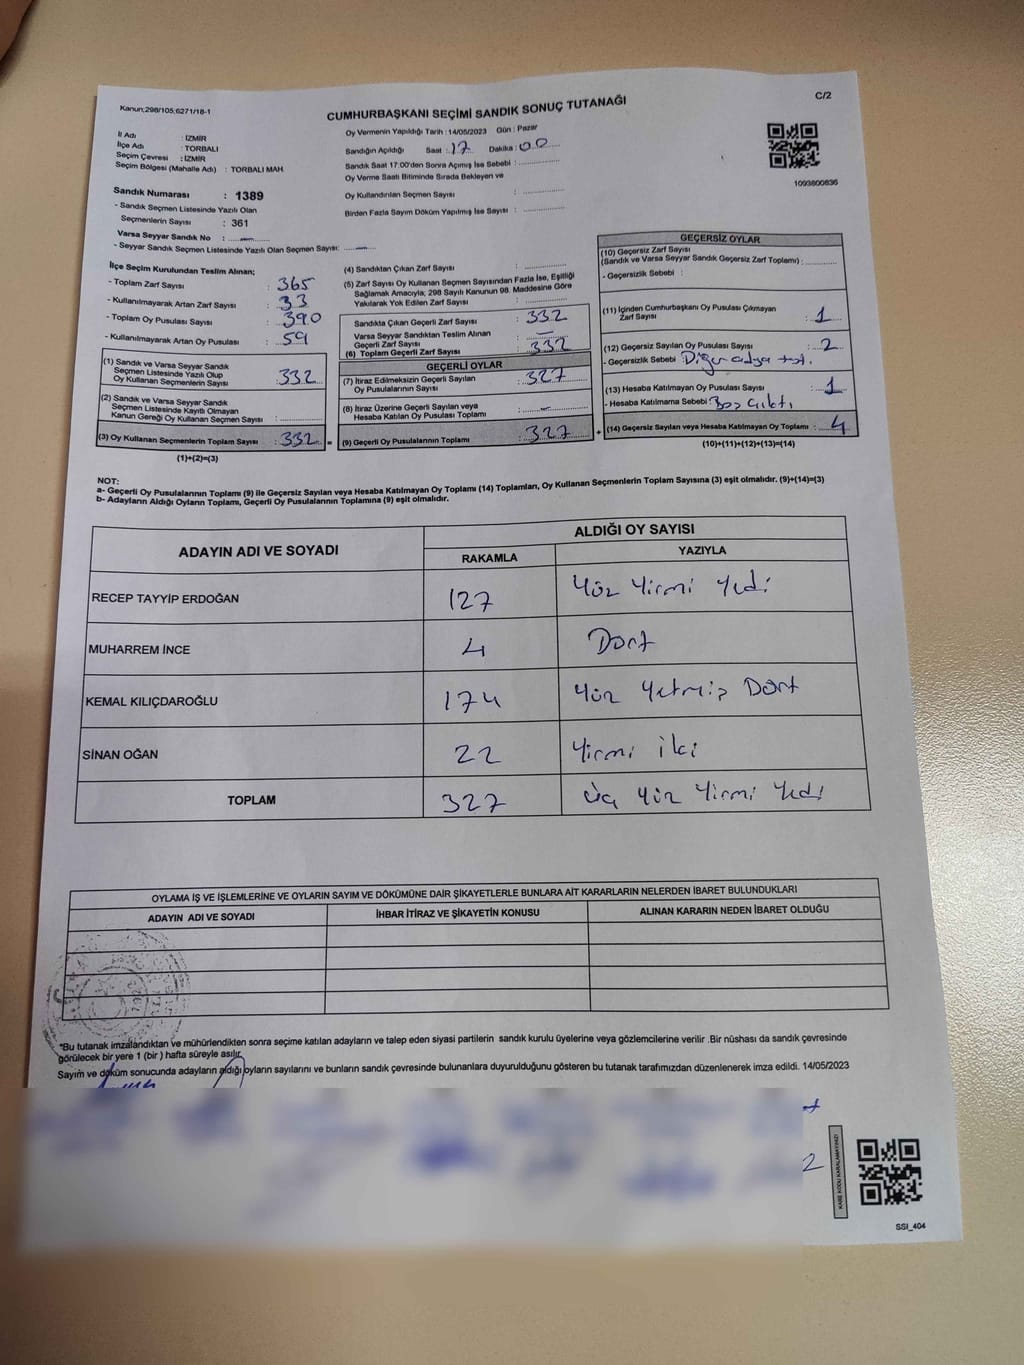 Kanun;298/105;6271/18-1
CUMHURBAŞKANI SEÇİMİ SANDIK SONUÇ TUTANAĞI
C/2
İl Adı : İZMİR
İlçe Adı : TORBALI
Seçim Çevresi : İZMİR
Seçim Bölgesi (Mahalle Adı) : TORBALI MAH.
Oy Vermenin Yapıldığı Tarih : 14/05/2023 Gün : Pazar
Sandığın Açıldığı Saat : 17 Dakika : 00
Sandık Saat 17:00'den Sonra Açılmış İse Sebebi :
Oy Verme Saati Bitiminde Sırada Bekleyen ve
Oy Kullandırılan Seçmen Sayısı :
Birden Fazla Sayım Döküm Yapılmış İse Sayısı :
1093800836
Sandık Numarası : 1389
- Sandık Seçmen Listesinde Yazılı Olan
Seçmenlerin Sayısı : 361
Varsa Seyyar Sandık No : —
- Seyyar Sandık Seçmen Listesinde Yazılı Olan Seçmen Sayısı: —
İlçe Seçim Kurulundan Teslim Alınan;
- Toplam Zarf Sayısı : 365
- Kullanılmayarak Artan Zarf Sayısı : 33
- Toplam Oy Pusulası Sayısı : 390
- Kullanılmayarak Artan Oy Pusulası : 59
(1) Sandık ve Varsa Seyyar Sandık
Seçmen Listesinde Yazılı Olup
Oy Kullanan Seçmenlerin Sayısı : 332
(2) Sandık ve Varsa Seyyar Sandık
Seçmen Listesinde Kayıtlı Olmayan
Kanun Gereği Oy Kullanan Seçmen Sayısı :
(3) Oy Kullanan Seçmenlerin Toplam Sayısı : 332 =
(1)+(2)=(3)
(4) Sandıktan Çıkan Zarf Sayısı :
(5) Zarf Sayısı Oy Kullanan Seçmen Sayısından Fazla İse, Eşitliği
Sağlamak Amacıyla; 298 Sayılı Kanunun 98. Maddesine Göre
Yakılarak Yok Edilen Zarf Sayısı :
Sandıkta Çıkan Geçerli Zarf Sayısı : 332
Varsa Seyyar Sandıktan Teslim Alınan
Geçerli Zarf Sayısı : —
(6) Toplam Geçerli Zarf Sayısı : 332
GEÇERLİ OYLAR
(7) İtiraz Edilmeksizin Geçerli Sayılan
Oy Pusulalarının Sayısı : 327
(8) İtiraz Üzerine Geçerli Sayılan veya
Hesaba Katılan Oy Pusulası Toplamı : —
(9) Geçerli Oy Pusulalarının Toplamı : 327 +
GEÇERSİZ OYLAR
(10) Geçersiz Zarf Sayısı
(Sandık ve Varsa Seyyar Sandık Geçersiz Zarf Toplamı) :
- Geçersizlik Sebebi :
(11) İçinden Cumhurbaşkanı Oy Pusulası Çıkmayan
Zarf Sayısı : 1
(12) Geçersiz Sayılan Oy Pusulası Sayısı : 2
- Geçersizlik Sebebi :
(13) Hesaba Katılmayan Oy Pusulası Sayısı : 1
- Hesaba Katılmama Sebebi : Boş çıktı
(14) Geçersiz Sayılan veya Hesaba Katılmayan Oy Toplamı : 4
(10)+(11)+(12)+(13)=(14)
NOT:
a- Geçerli Oy Pusulalarının Toplamı (9) ile Geçersiz Sayılan veya Hesaba Katılmayan Oy Toplamı (14) Toplamları, Oy Kullanan Seçmenlerin Toplam Sayısına (3) eşit olmalıdır. (9)+(14)=(3)
b- Adayların Aldığı Oyların Toplamı, Geçerli Oy Pusulalarının Toplamına (9) eşit olmalıdır.
ADAYIN ADI VE SOYADI
ALDIĞI OY SAYISI
RAKAMLA YAZIYLA
RECEP TAYYİP ERDOĞAN 127 Yüz Yirmi Yedi
MUHARREM İNCE 4 Dört
KEMAL KILIÇDAROĞLU 174 Yüz Yetmiş Dört
SİNAN OĞAN 22 Yirmi iki
TOPLAM 327 Üç Yüz Yirmi Yedi
OYLAMA İŞ VE İŞLEMLERİNE VE OYLARIN SAYIM VE DÖKÜMÜNE DAİR ŞİKAYETLERLE BUNLARA AİT KARARLARIN NELERDEN İBARET BULUNDUKLARI
ADAYIN ADI VE SOYADI İHBAR İTİRAZ VE ŞİKAYETİN KONUSU ALINAN KARARIN NEDEN İBARET OLDUĞU
*Bu tutanak imzalandıktan ve mühürlendikten sonra seçime katılan adayların ve talep eden siyasi partilerin sandık kurulu üyelerine veya gözlemcilerine verilir .Bir nüshası da sandık çevresinde
görülecek bir yere 1 (bir ) hafta süreyle asılır.
Sayım ve döküm sonucunda adayların aldığı oyların sayılarını ve bunların sandık çevresinde bulunanlara duyurulduğunu gösteren bu tutanak tarafımızdan düzenlenerek imza edildi. 14/05/2023
SSI_404